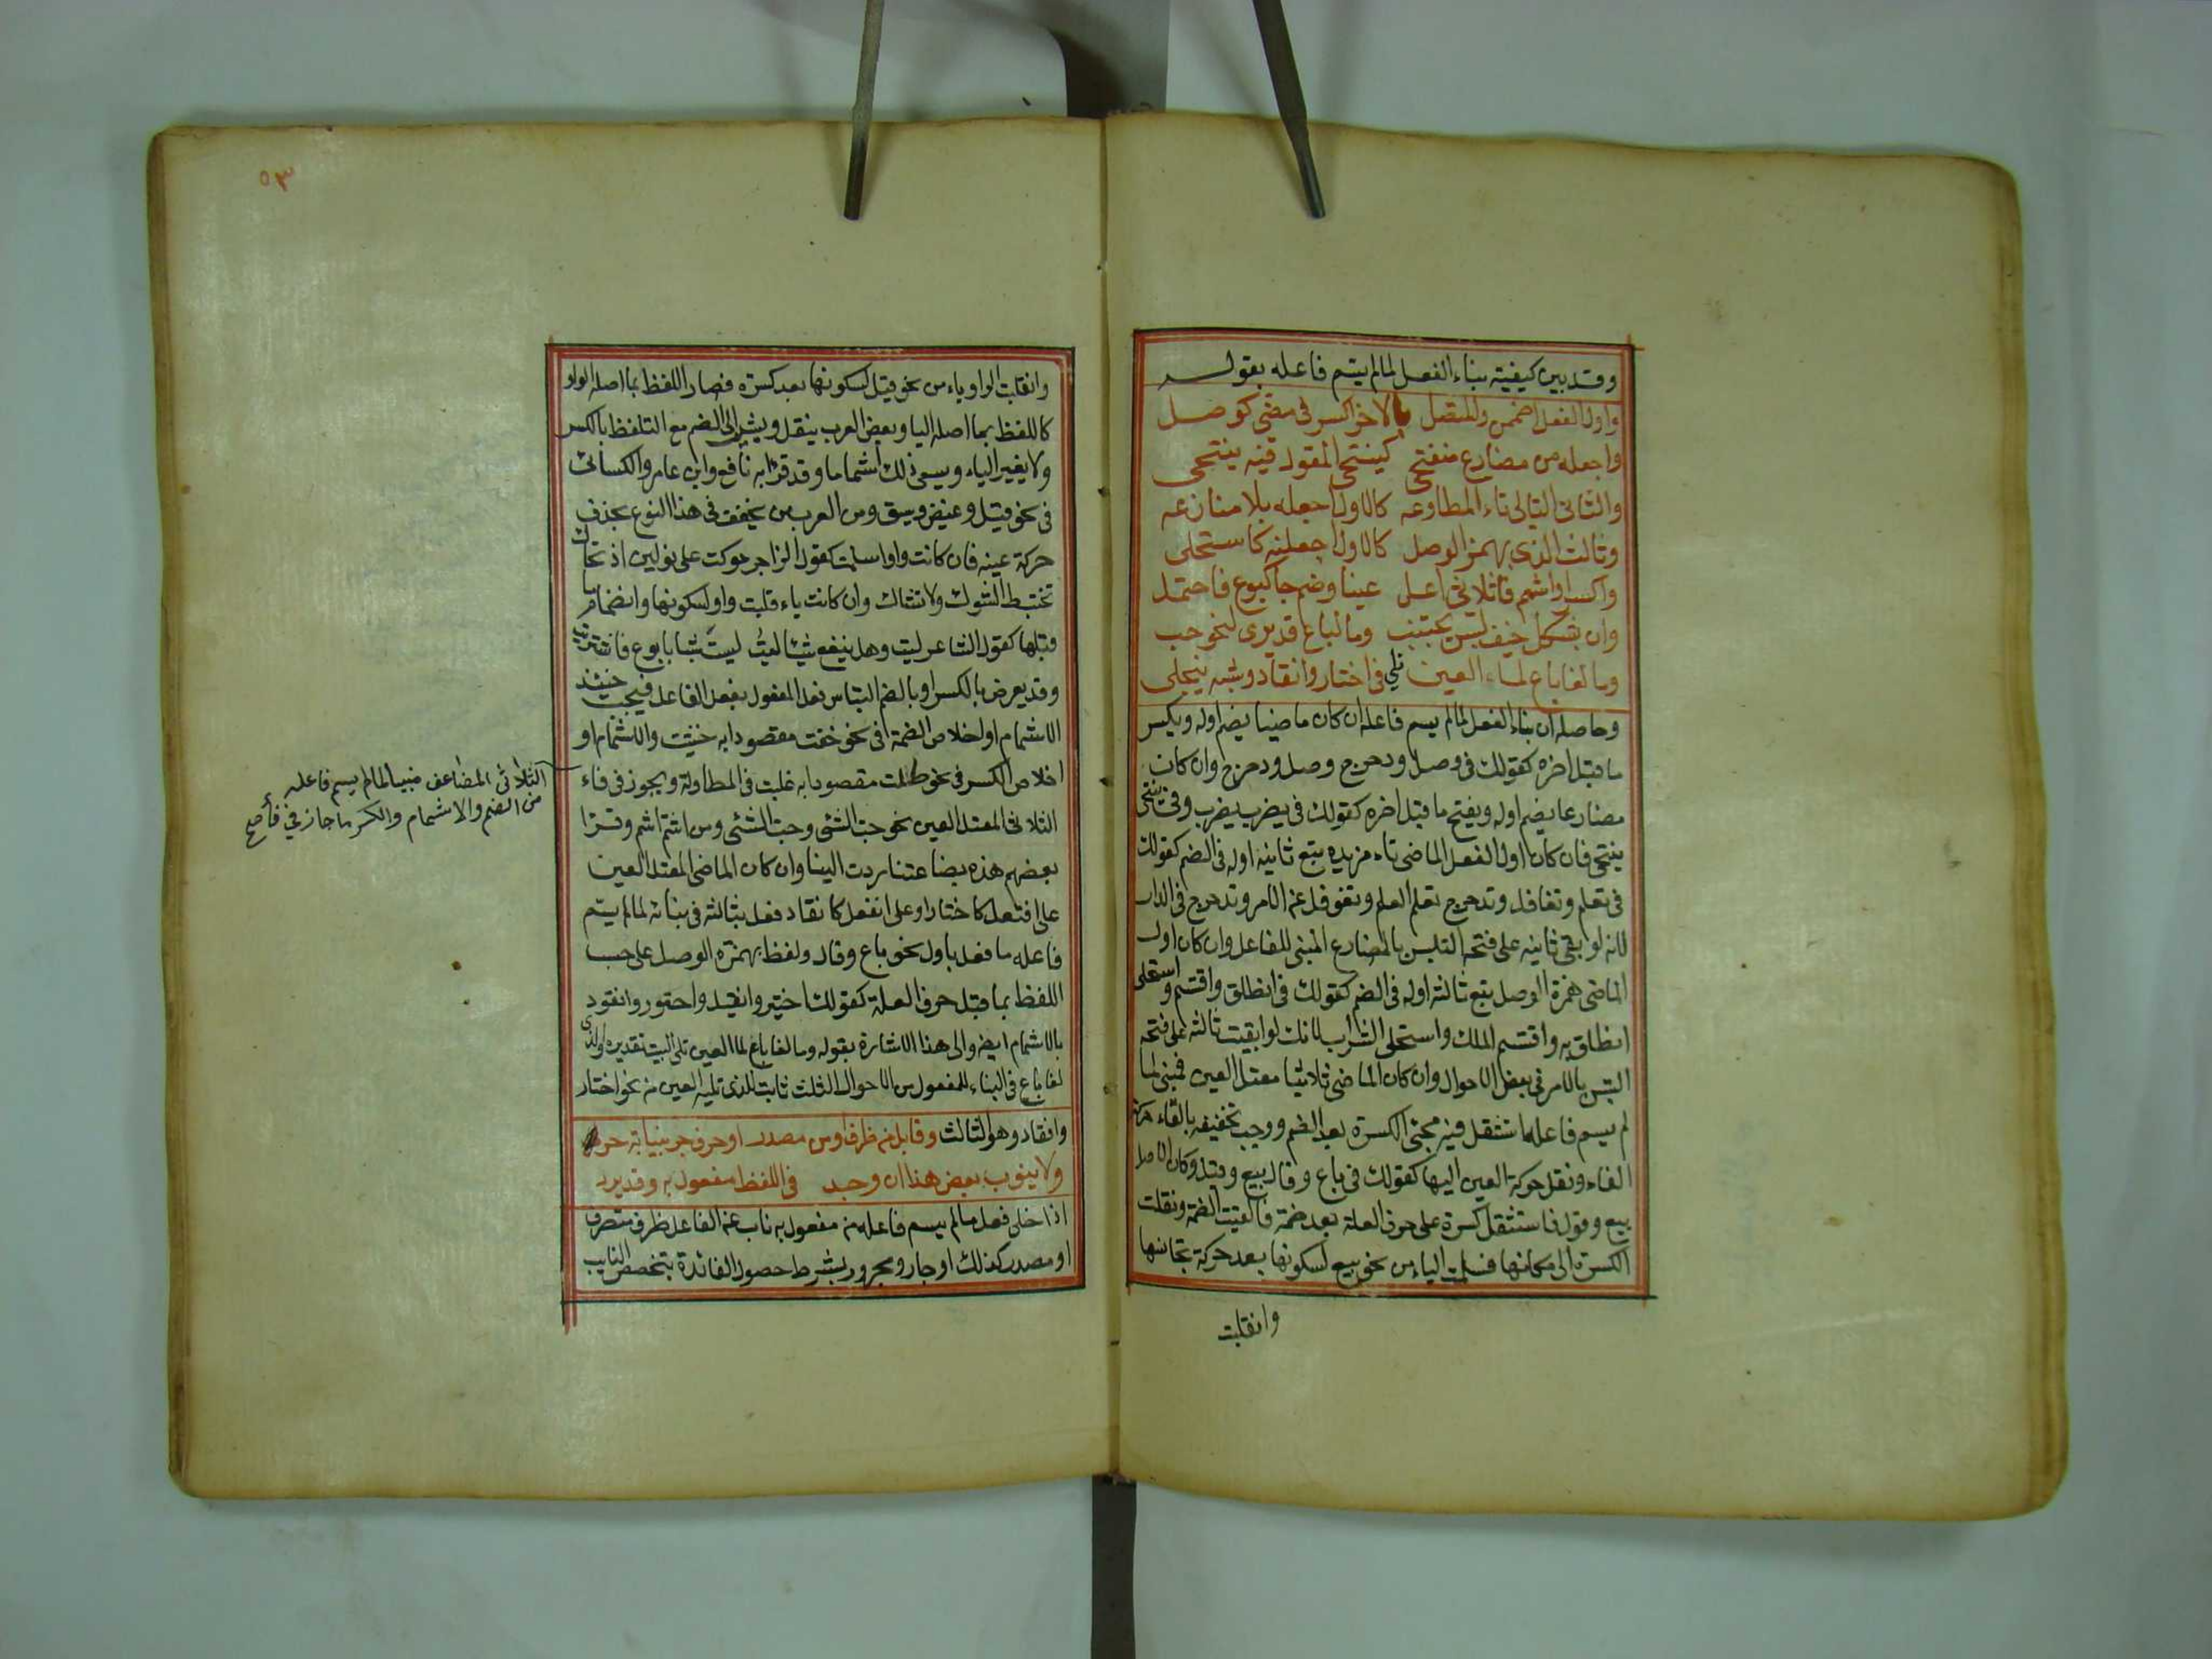 وقد بين كيفية بناء الفعل لما لم يسم فاعله بقوله
واول الفعل اضممن والمتصل بالاخر اكسر في مضي كوصل
واجعله من مضارع منفتحي كينتحي المقول فيه ينتحى
والثاني التالي تاء المطاوعه كالاول اجعله بلا منازعه
وثالث الذي بهمز الوصل كالاول اجعلنه كاستحلى
واكسر او اشمم فا ثلاثي اعل عينا وضم جا كبوع فاحتمل
وان بشكل خيف لبس يجتنب وما لباع قد يرى لنحو حب
وما لفا باع لما العين تلي في اختار وانقاد وشبه ينجلى
وحاصله ان بناء الفعل لما لم يسم فاعله ان كان ماضيا يضم اوله ويكسر
ما قبل اخره كقولك في وصل ودحرج وصل ودحرج وان كان
مضارعا يضم اوله ويفتح ما قبل اخره كقولك في يضرب يضرب وفي ينتحي
ينتحى فان كان اول الفعل الماضي تاء مزيده يتبع ثانيه اوله في الضم كقولك
في تعلم وتغافل وتدحرج تعلم العلم وتغوفل عن الامر وتدحرج في الدار
لانه لو بقى ثانيه على فتحه لالتبس بالمضارع المبني للفاعل وان كان اول
الماضي همزة الوصل يتبع ثالثه اوله في الضم كقولك في انطلق واقتسم واستحلى
انطلق به واقتسم الملك واستحلى الشراب لانك لو ابقيت ثالثه على فتحه
التبس بالامر في بعض الاحوال وان كان الماضي ثلاثيا معتل العين فبني لما
لم يسم فاعله استثقل فيه مجئ الكسرة بعد الضم ووجب تخفيفه بالقاء حركة
الفاء ونقل حركة العين اليها كقولك في باع وقال بيع وقيل وكان الاصل
بيع وقول فاستثقل كسرة على حرف العلة بعد ضمة فالقيت الضمة ونقلت
الكسرة الى مكانها فسلمت الياء من نحو بيع لسكونها بعد حركة تجانسها
وانقلبت
٥٣
وانقلبت الواو ياء من نحو قيل لسكونها بعد كسرة فصار اللفظ بما اصله الواو
كاللفظ بما اصله اليا وبعض العرب ينقل ويشير الى الضم مع التلفظ بالكسر
ولا يغير الياء ويسمى ذلك اشماما وقد قرا به نافع وابن عامر والكسائي
في نحو قيل وغيض وسيق ومن العرب من يخفف في هذا النوع بحذف
حركة عينه فان كانت واوا سلمت كقول الزاجر حوكت على نولين اذ تحاك
تختبط الشوك ولا تشاك وان كانت ياء قلبت واو لسكونها وانضمام ما
قبلها كقول الشاعر ليت وهل ينفع شيئا ليت ليت شبابا بوع فاشتريت
وقد يعرض بالكسر او بالضم التباس فعل المفعول بفعل الفاعل فيجب حينئذ
الاشمام او اخلاص الضمة في نحو خفت مقصودا به خشيت والاشمام او
اخلاص الكسر في نحو طلت مقصودا به غلبت في المطاولة ويجوز في فاء
الثلاثي المضاعف مبنيا لما لم يسم فاعله
من الضم والاشمام والكسر ما جاز في فا
الثلاثي المعتل العين نحو حب الشئ وحب الشئ ومن اشم اشم وقرا
بعضهم هذه بضاعتنا ردت الينا وان كان الماضي المعتل العين
على افتعل كاختار او على انفعل كانقاد فعل بثالثه في بنائه لما لم يسم
فاعله ما فعل باول نحو باع وقال ولفظ بهمزة الوصل على حسب
اللفظ بما قبل حرف العلة كقولك اختير وانقيد واختور وانقود
بالاشمام ايضا والى هذا الاشارة بقوله وما لفا باع لما العين تلى البيت تقديره والذي
لفا باع في البناء للمفعول من الاحوال الثلث ثابت للذي تليه العين من نحو اختار
وانقاد وهو الثالث وقابل من ظرف او من مصدر او حرف جر بنيابة حر
ولا ينوب بعض هذا ان وجد في اللفظ مفعول به وقد يرد
اذا خلى فعل ما لم يسم فاعله من مفعول به ناب عن الفاعل ظرف متصرف
او مصدر كذلك او جار ومجرور بشرط حصول الفائدة بتخصص النايب